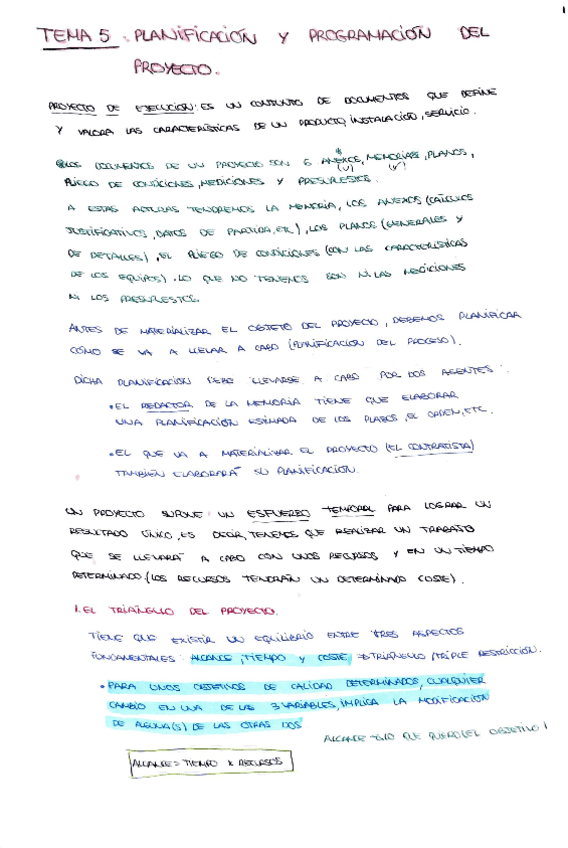 1
TEMA 5 : PLANIFICACIÓN Y PROGRAMACIÓN DEL
PROYECTO.
PROYECTO DE EJECUCIÓN: ES UN CONJUNTO DE DOCUMENTOS QUE DEFINE
Y VALORA LAS CARACTERÍSTICAS DE UN PRODUCTO, INSTALACIÓN, SERVICIO.
LOS DOCUMENTOS DE UN PROYECTO SON 6 ANEXOS, MEMORIAS, PLANOS,
PLIEGO DE CONDICIONES, MEDICIONES Y PRESUPUESTOS.
A ESTAS ALTURAS TENDREMOS LA MEMORIA, LOS ANEXOS (CÁLCULOS
JUSTIFICATIVOS, DATOS DE PARTIDA, ETC), LOS PLANOS (GENERALES Y
DE DETALLES), EL PLIEGO DE CONDICIONES (CON LAS CARACTERÍSTICAS
DE LOS EQUIPOS). LO QUE NO TENEMOS SON NI LAS MEDICIONES
NI LOS PRESUPUESTOS.
ANTES DE MATERIALIZAR EL OBJETO DEL PROYECTO, DEBEMOS PLANIFICAR
CÓMO SE VA A LLEVAR A CABO (PLANIFICACIÓN DEL PROCESO).
DICHA PLANIFICACIÓN DEBE LLEVARSE A CABO POR DOS AGENTES:
• EL REDACTOR DE LA MEMORIA TIENE QUE ELABORAR
UNA PLANIFICACIÓN ESTIMADA DE LOS PLAZOS, EL ORDEN, ETC.
• EL QUE VA A MATERIALIZAR EL PROYECTO (EL CONTRATISTA)
TAMBIÉN ELABORARÁ SU PLANIFICACIÓN.
UN PROYECTO SUPONE UN ESFUERZO TEMPORAL PARA LOGRAR UN
RESULTADO ÚNICO, ES DECIR, TENEMOS QUE REALIZAR UN TRABAJO
QUE SE LLEVARÁ A CABO CON UNOS RECURSOS Y EN UN TIEMPO
DETERMINADO (LOS RECURSOS TENDRÁN UN DETERMINADO COSTE).
1. EL TRIÁNGULO DEL PROYECTO.
TIENE QUE EXISTIR UN EQUILIBRIO ENTRE TRES ASPECTOS
FUNDAMENTALES: ALCANCE, TIEMPO Y COSTE → TRIÁNGULO / TRIPLE RESTRICCIÓN.
• PARA UNOS OBJETIVOS DE CALIDAD DETERMINADOS, CUALQUIER
CAMBIO EN UNA DE LAS 3 VARIABLES, IMPLICA LA MODIFICACIÓN
DE ALGUNA(S) DE LAS OTRAS DOS
ALCANCE → LO QUE QUIERO (EL OBJETIVO)
ALCANCE = TIEMPO X RECURSOS